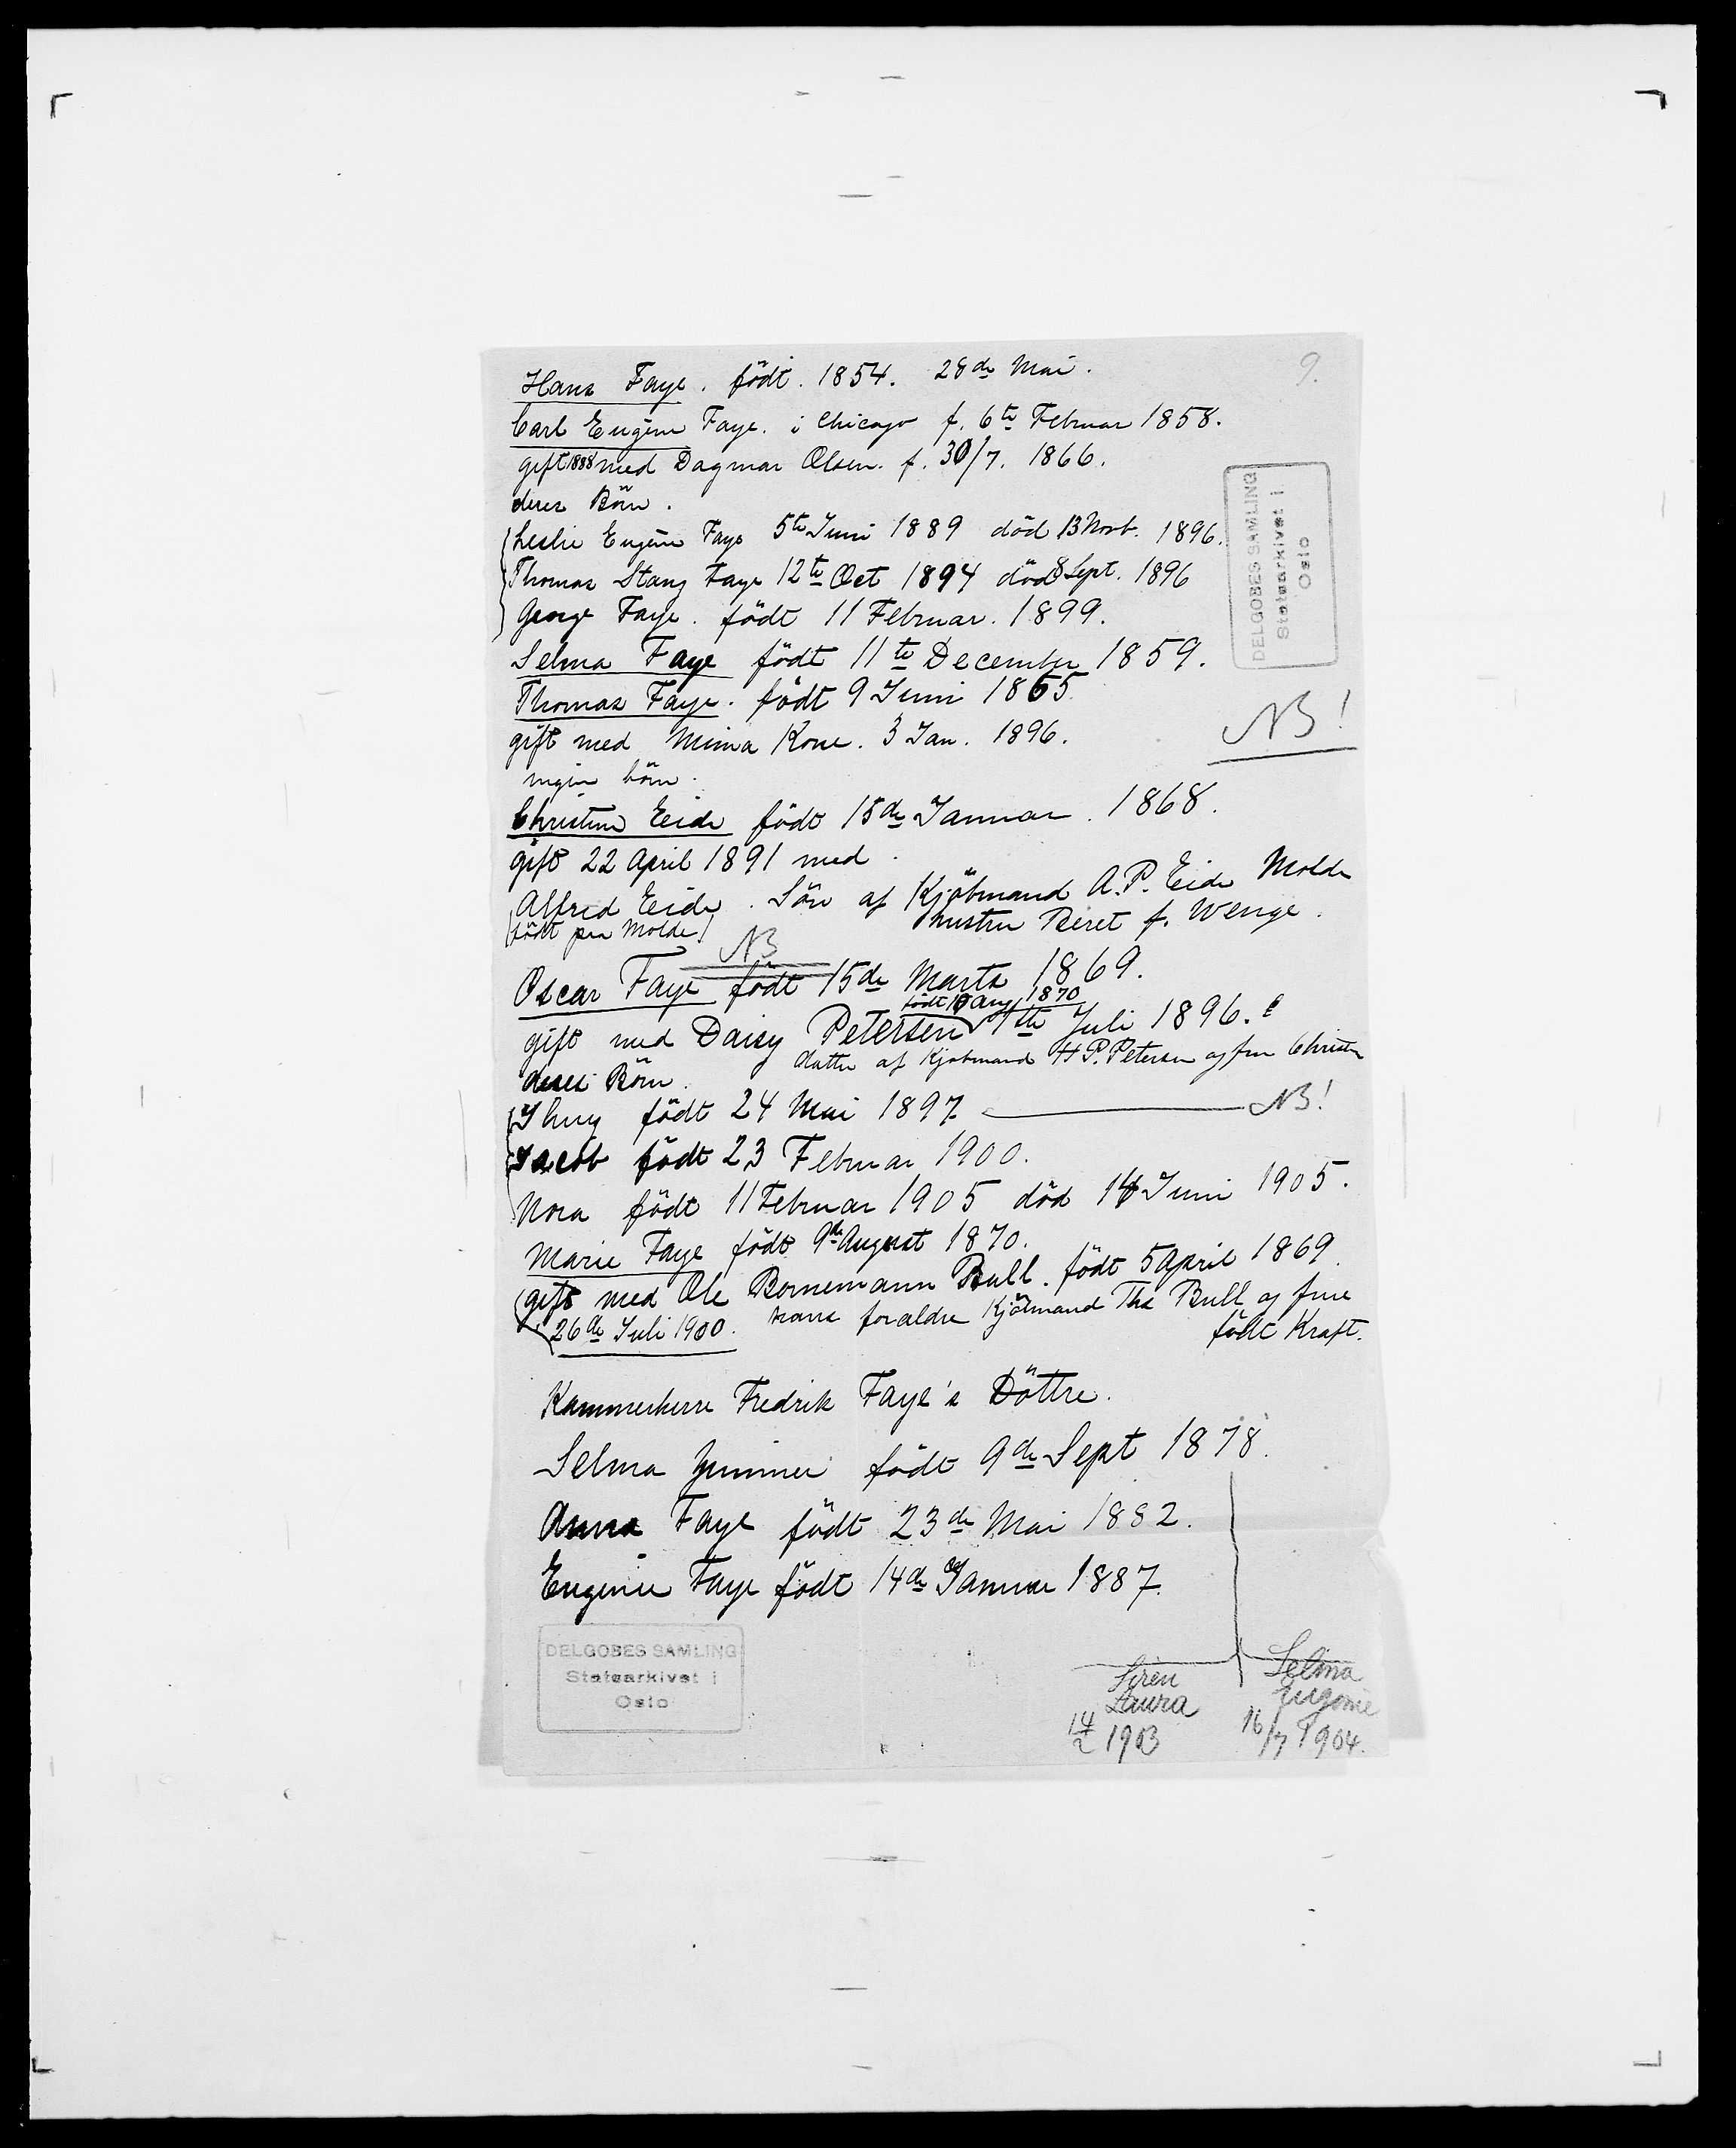 9.
Hans Faye. födt. 1854. 28de Mai.
Carl Eugène Faye. i Chicago f. 6te Februar 1858.
gift 1888 med Dagmar Olsen. f. 30/7. 1866.
deres Börn.
Leslie Eugène Faye 5te Juni 1889 död 13 Novb. 1896.
Thomas Stang Faye 12te Oct 1894 död 8 Sept. 1896
George Faye. födt 11 Februar. 1899.
Selma Faye födt 11te December 1859.
Thomas Faye. födt 9 Juni 1865
NB!
gift med Minna Kone. 3 Jan. 1896.
ingen börn.
Christine Eide födt 15de Januar. 1868.
gift 22 April 1891 med
Alfred Eide. Sön af Kjöbmand A.P. Eide Molde
(födt paa Molde) hustru Beret f. Wenge.
NB
Oscar Faye födt 15de Marts 1869.
födt 10 Aug 1870
gift med Daisy Petersen 1te Juli 1896.
deres Börn. datter af Kjöbmand H P. Petersen og fru Christen
födt 24 Mai 1897 NB!
Jacob födt 23 Februar 1900.
Nora födt 11 Februar 1905 död 14 Juni 1905.
Marie Faye födt 9de August 1870.
gift med Ole Bornemann Bull. födt 5 April 1869.
26de Juli 1900. hans foraldre Kjöbmand Ths Bull og frue
födt Kraft.
Kammerherre Fredrik Faye's Döttre.
Selma födt 9de Sept 1878.
Anna Faye födt 23de Mai 1882.
Eugenie Faye födt 14de Januar 1887.
Siren Laura 14/2 1903
Selma Eugenie 16/7 1904.
DELGOBES SAMLING
Statsarkivet i
Oslo
DELGOBES SAMLING
Statsarkivet i
Oslo